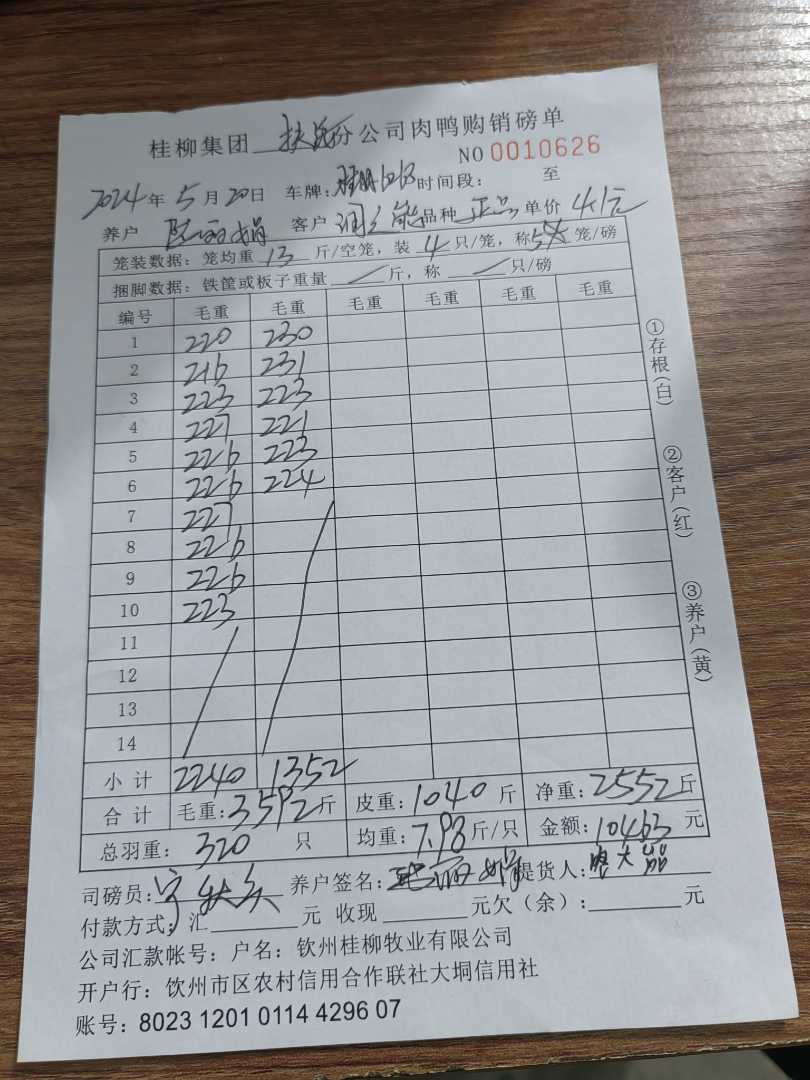 桂柳集团 扶绥 公司肉鸭购销磅单
NO 0010626
2024年5月20日 车牌: 时间段: 至
养户 客户 润之能 品种 正品 单价 4.1元
笼装数据：笼均重 13 斤/空笼，装 4 只/笼，称 5 笼/磅
捆脚数据：铁筐或板子重量 / 斤，称 / 只/磅
编号 毛重 毛重 毛重 毛重 毛重 毛重
1 220 230
2 216 231
3 223 223
4 227 221
5 226 223
6 226 224
7 227
8 226
9 226
10 223
11
12
13
14
小计 2240 1352
合计 毛重：3592斤 皮重：1040斤 净重：2552斤
总羽重：320 只 均重：7.98斤/只 金额：10463元
司磅员： 养户签名： 提货人：
付款方式：汇 元 收现 元欠（余）： 元
公司汇款帐号：户名：钦州桂柳牧业有限公司
开户行：钦州市区农村信用合作联社大垌信用社
账号：8023 1201 0114 4296 07
①存根(白)
②客户(红)
③养户(黄)